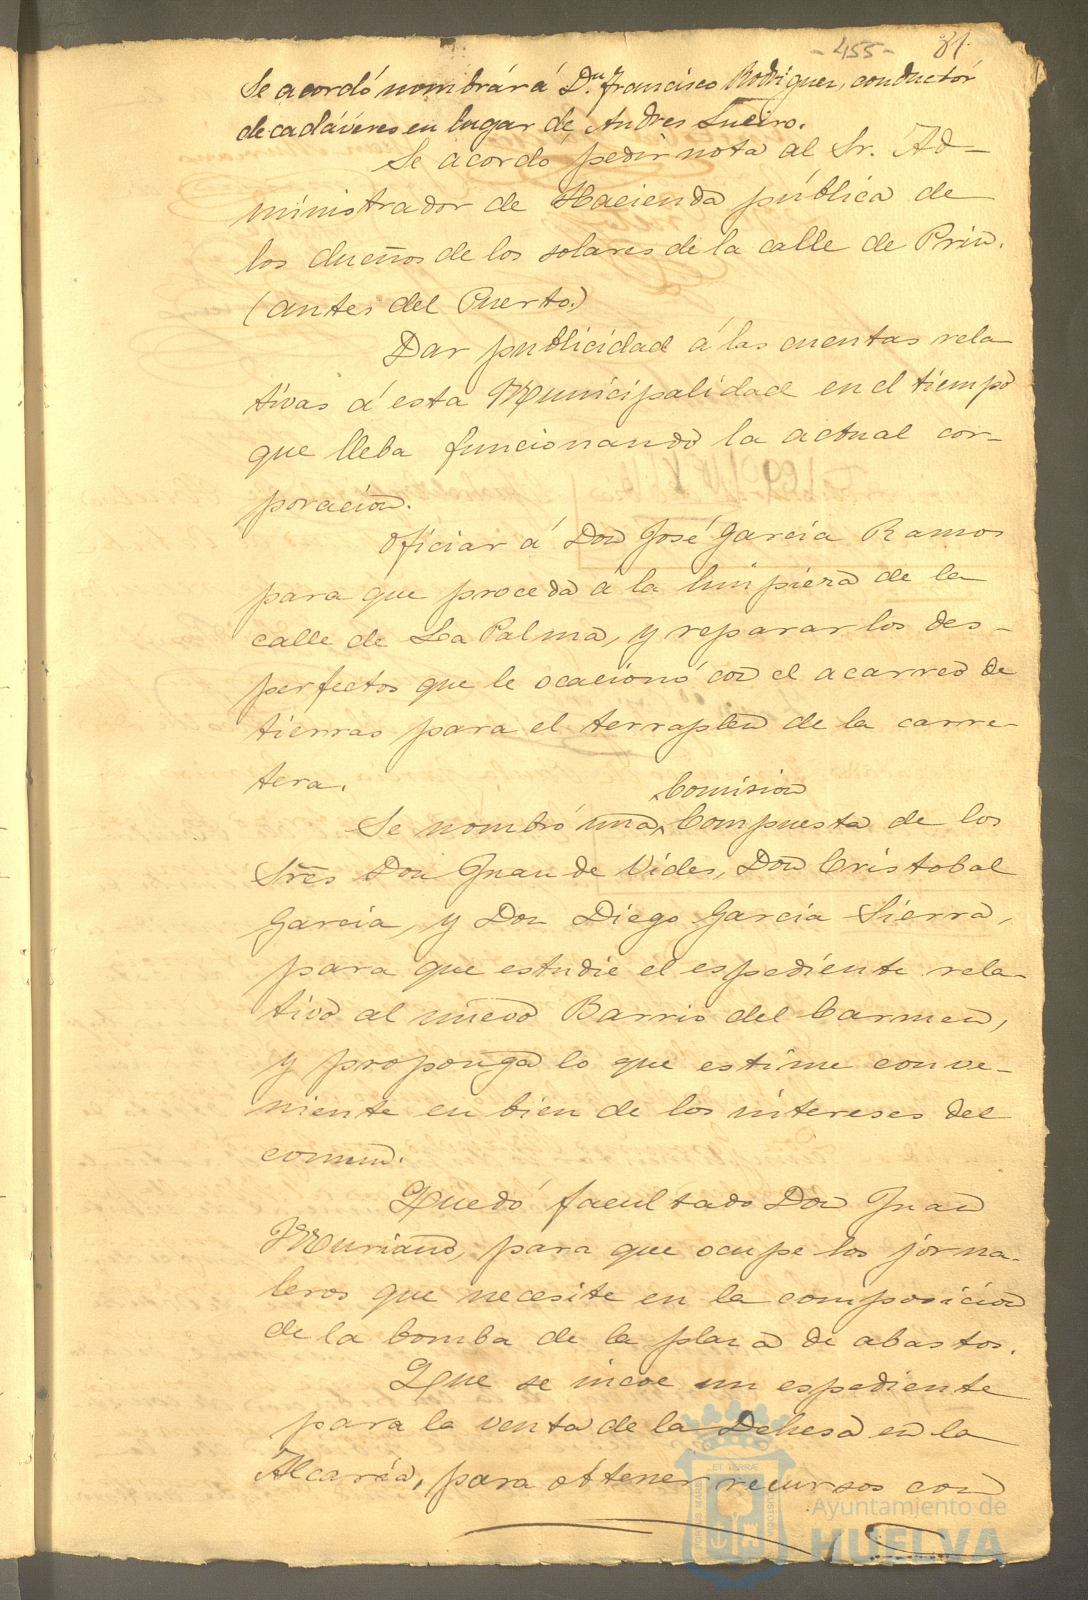 - 455 - 81.
Se acordó nombrár á Dn. Francisco Rodriguez, conductór
de cadáveres en lugar de Andres Sueiro.
Se acordó pedir nota al Sr. Ad-
ministrador de Hacienda pública de
los dueños de los solares de la calle de Prin.
(antes del Puerto.)
Dar publicidad á las cuentas rela
tivas á esta Municipalidad en el tiempo
que lleba funcionando la actual cor-
poracion.
Oficiar á Don José Garcia Ramos
para que proceda á la limpieza de la
calle de La Palma, y reparar los des-
perfectos que le ocacionó con el acarreo de
tierras para el terraplen de la carre-
tera.
Comision
Se nombró una Compuesta de los
Sres Don Juan de Vides, Don Cristobal
Garcia, y Don Diego Garcia Sierra,
para que estudie el espediente rela-
tivo al nuevo Barrio del Carmen,
y proponga lo que estime conve-
niente en bien de los intereses del
comun.
Quedó facultado Don Juan
Muriano, para que ocupe los jorna-
leros que necesite en la composicion
de la bomba de la plaza de abastos.
Que se incoe un espediente
para la venta de la Dehesa en la
Alcaria, para obtener recursos con
Ayuntamiento de
HUELVA